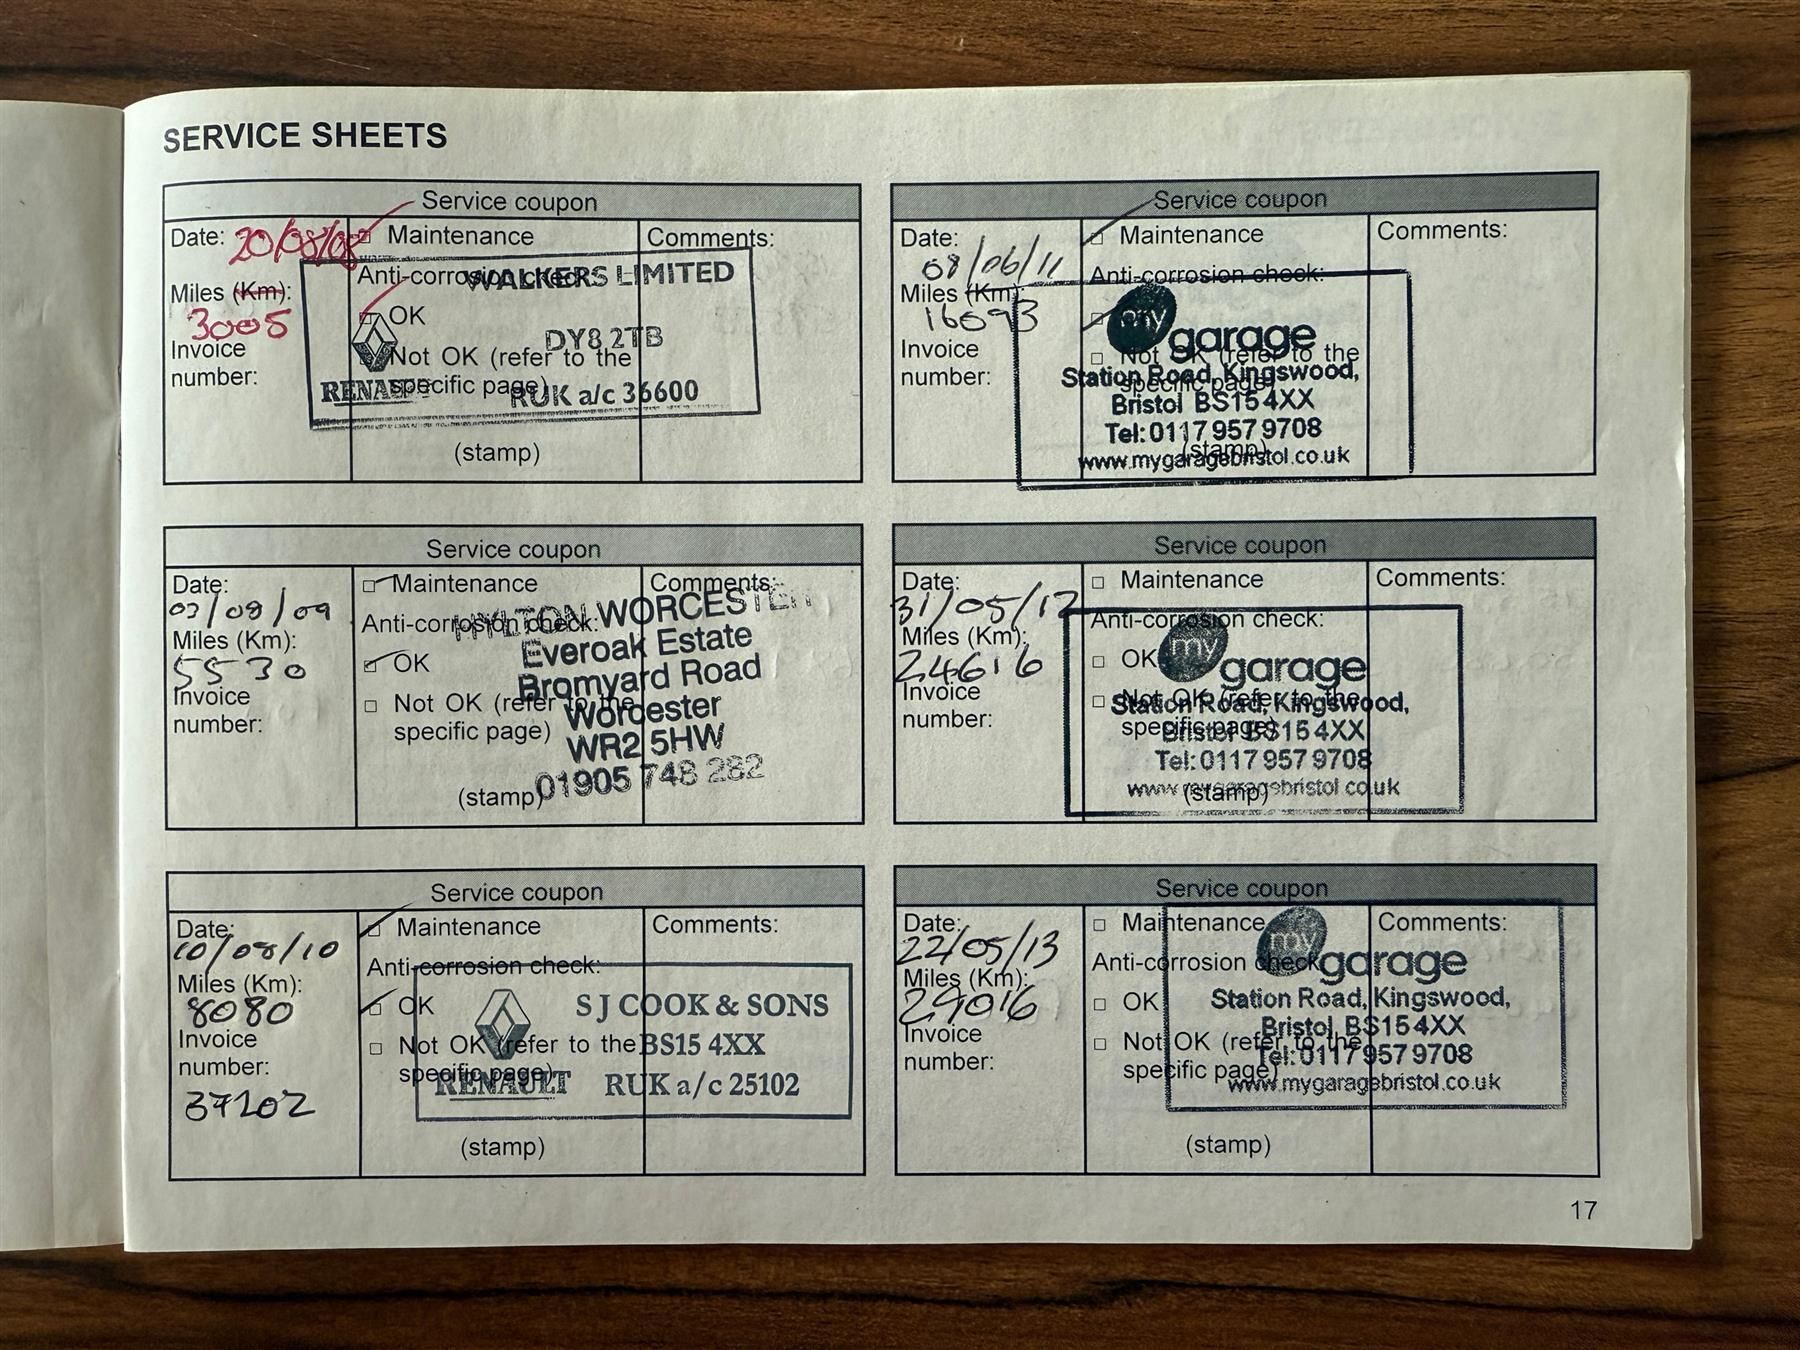 SERVICE SHEETS
Service coupon
Date: 20/08/08
Miles (Km):
3005
Invoice
number:
□ Maintenance
Anti-corrosion check:
□ OK
□ Not OK (refer to the
specific page)
(stamp)
Comments:
WALKERS LIMITED
DY8 2TB
RENAULT RUK a/c 36600
Service coupon
Date:
03/08/09
Miles (Km):
5530
Invoice
number:
□ Maintenance
Anti-corrosion check:
□ OK
□ Not OK (refer to the
specific page)
(stamp)
Comments:
HYLTON WORCESTER
Everoak Estate
Bromyard Road
Worcester
WR2 5HW
01905 748 282
Service coupon
Date:
10/08/10
Miles (Km):
8080
Invoice
number:
37202
□ Maintenance
Anti-corrosion check:
□ OK
□ Not OK (refer to the
specific page)
(stamp)
Comments:
S J COOK & SONS
BS15 4XX
RENAULT RUK a/c 25102
Service coupon
Date:
08/06/11
Miles (Km):
16093
Invoice
number:
□ Maintenance
Anti-corrosion check:
□ OK
□ Not OK (refer to the
specific page)
(stamp)
Comments:
my garage
Station Road, Kingswood,
Bristol BS15 4XX
Tel: 0117 957 9708
www.mygaragebristol.co.uk
Service coupon
Date:
31/05/12
Miles (Km):
24616
Invoice
number:
□ Maintenance
Anti-corrosion check:
□ OK
□ Not OK (refer to the
specific page)
(stamp)
Comments:
my garage
Station Road, Kingswood,
Bristol BS15 4XX
Tel: 0117 957 9708
www.mygaragebristol.co.uk
Service coupon
Date:
22/05/13
Miles (Km):
29016
Invoice
number:
□ Maintenance
Anti-corrosion check:
□ OK
□ Not OK (refer to the
specific page)
(stamp)
Comments:
my garage
Station Road, Kingswood,
Bristol BS15 4XX
Tel: 0117 957 9708
www.mygaragebristol.co.uk
17